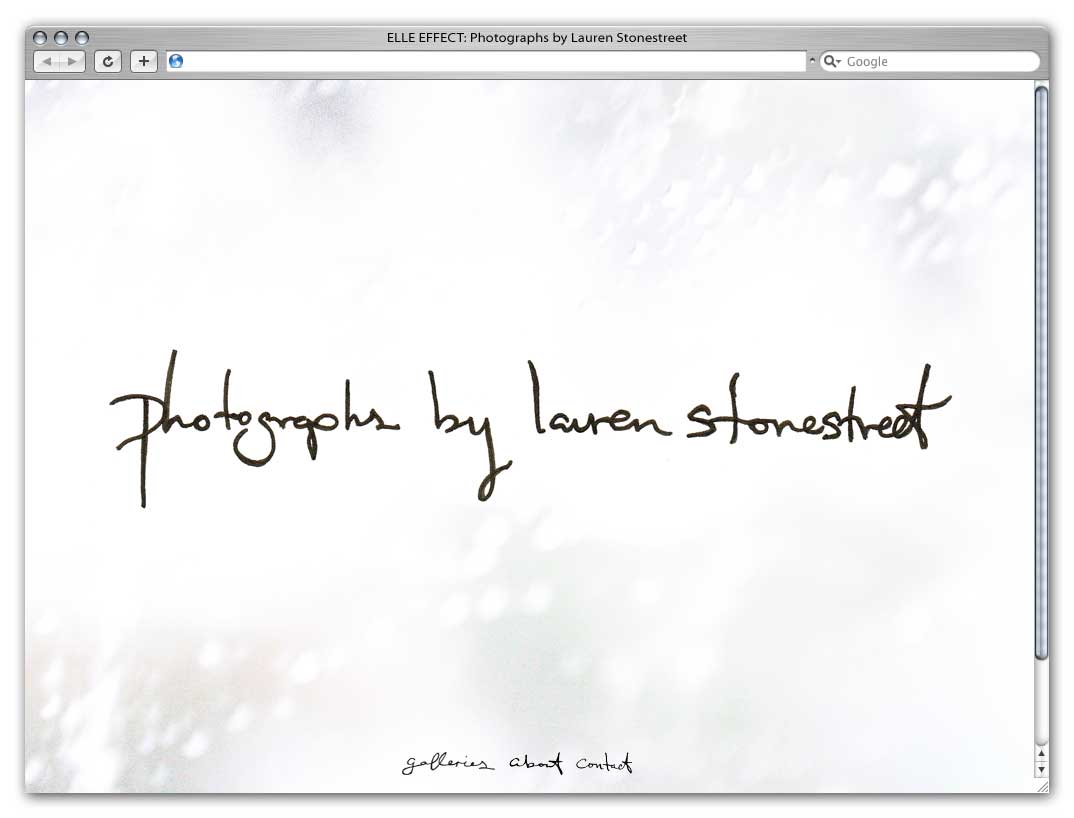 ELLE EFFECT: Photographs by Lauren Stonestreet
Google
photographs by lauren stonestreet
galleries about contact